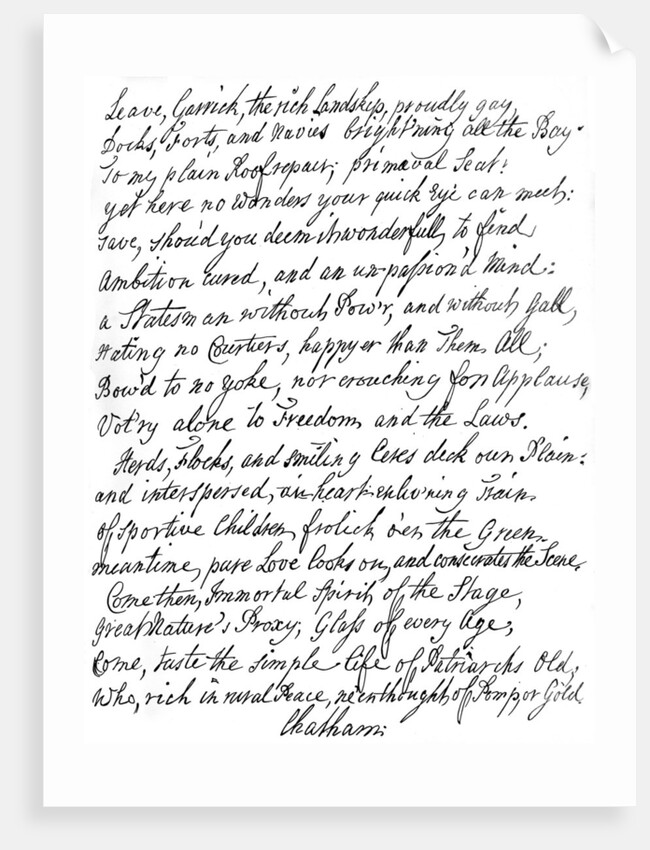 Leave, Garrick, the rich Landskip, proudly gay,
Docks, Forts, and Navies bright'ning all the Bay.
To my plain Roof repair; primæval Seat!
yet here no wonders your quick Eye can meet:
save, shou'd you deem it wonderfull, to find
Ambition cured, and an un-passion'd Mind:
a Statesman without Pow'r, and without Gall,
Hating no Courtiers, happyer than Them All;
Bow'd to no yoke, nor crouching for Applause,
Vot'ry alone to Freedom and the Laws.
Herds, Flocks, and smiling Ceres deck our Plain:
and interspersed, an heart-enlivening Train
of sportive Children frolick o'er the Green.
meantime, pure Love looks on, and consecrates the Scene.
Come then, Immortal Spirit of the Stage,
Great Nature's Proxy, Glass of every Age,
Come, taste the simple life of Patriarchs Old,
Who, rich in rural Peace, ne'er thought of Pomp, or Gold.
Chatham.